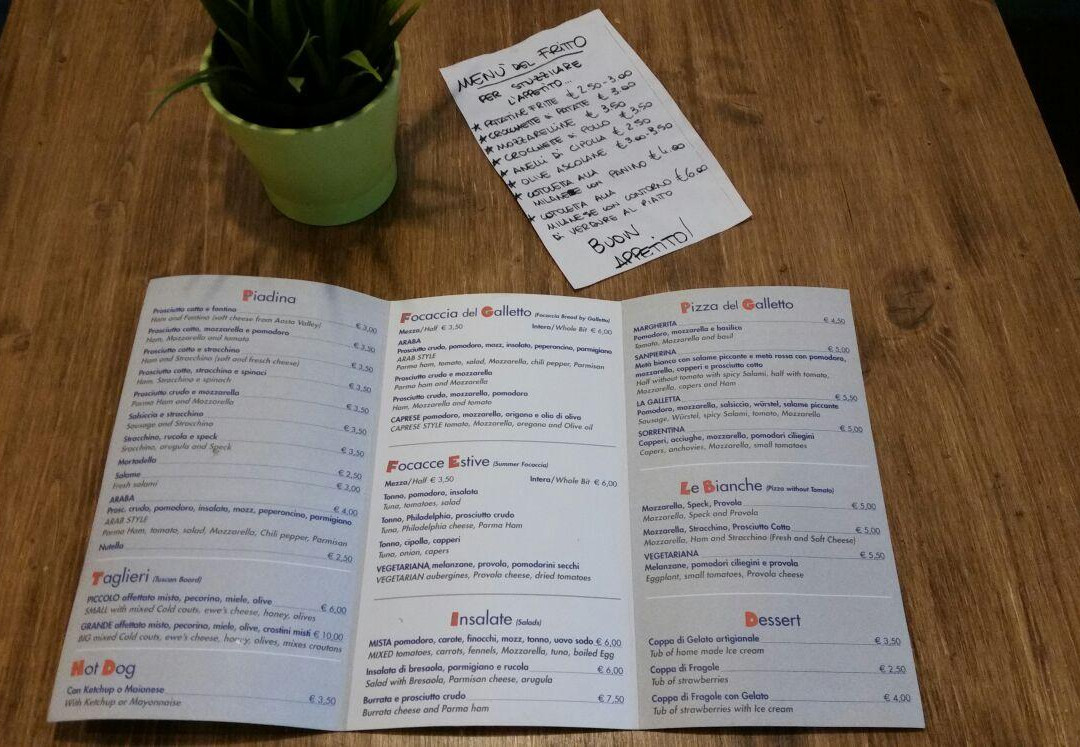 MENÙ DEL FRITTO
PER STUZZICARE
L'APPETITO...
★ PATATINE FRITTE € 2.50-3.00
★ CROCCHETTE DI PATATE € 3.00
★ MOZZARELLINE € 3.50
★ CROCCHETTE DI POLLO € 3.50
★ ANELLI DI CIPOLLA € 2.50
★ OLIVE ASCOLANE € 3.00-3.50
★ COTOLETTA ALLA
MILANESE CON PANINO € 4.00
★ COTOLETTA ALLA
MILANESE CON CONTORNO € 6.00
DI VERDURE AL PIATTO
BUON
APPETITO!
Piadina
Prosciutto cotto e fontina € 3,00
Ham and Fontina (soft cheese from Aosta Valley)
Prosciutto cotto, mozzarella e pomodoro € 3,50
Ham, Mozzarella and tomato
Prosciutto cotto e stracchino € 3,50
Ham and Stracchino (soft and fresch cheese)
Prosciutto cotto, stracchino e spinaci € 3,50
Ham, Stracchino e spinach
Prosciutto crudo e mozzarella € 3,50
Parma Ham and Mozzarella
Salsiccia e stracchino € 3,50
Sausage and Stracchino
Stracchino, rucola e speck € 3,50
Stracchino, arugula and Speck
Mortadella € 2,50
Salame € 3,00
Fresh salami
ARABA € 4,00
Prosc. crudo, pomodoro, insalata, mozz, peperoncino, parmigiano
ARAB STYLE
Parma Ham, tomato, salad, Mozzarella, Chili pepper, Parmisan
Nutella € 2,50
Taglieri (Tuscan Board)
PICCOLO affettato misto, pecorino, miele, olive € 6,00
SMALL with mixed Cold couts, ewe's cheese, honey, olives
GRANDE affettato misto, pecorino, miele, olive, crostini misti € 10,00
BIG mixed Cold couts, ewe's cheese, honey, olives, mixes croutons
Hot Dog
Con Ketchup o Maionese € 3,50
With Ketchup or Mayonnaise
Focaccia del Galletto (Focaccia Bread by Galletto)
Mezza/Half € 3,50 Intera/Whole Bit € 6,00
ARABA
Prosciutto crudo, pomodoro, mozz, insalata, peperoncino, parmigiano
ARAB STYLE
Parma ham, tomato, salad, Mozzarella, chili pepper, Parmisan
Prosciutto crudo e mozzarella
Parma ham and Mozzarella
Prosciutto crudo, mozzarella, pomodoro
Ham, Mozzarella and tomato
CAPRESE pomodoro, mozzarella, origano e olio di oliva
CAPRESE STYLE tomato, Mozzarella, oregano and Olive oil
Focacce Estive (Summer Focaccia)
Mezza/Half € 3,50 Intera/Whole Bit € 6,00
Tonno, pomodoro, insalata
Tuna, tomatoes, salad
Tonno, Philadelphia, prosciutto crudo
Tuna, Philadelphia cheese, Parma Ham
Tonno, cipolla, capperi
Tuna, onion, capers
VEGETARIANA, melanzane, provola, pomodorini secchi
VEGETARIAN aubergines, Provola cheese, dried tomatoes
Insalate (Salads)
MISTA pomodoro, carote, finocchi, mozz, tonno, uovo sodo € 6,00
MIXED tomatoes, carrots, fennels, Mozzarella, tuna, boiled Egg
Insalata di bresaola, parmigiano e rucola € 6,00
Salad with Bresaola, Parmisan cheese, arugula
Burrata e prosciutto crudo € 7,50
Burrata cheese and Parma ham
Pizza del Galletto
MARGHERITA € 4,50
Pomodoro, mozzarella e basilico
Tomato, Mozzarella and basil
SANPIERINA € 5,00
Metà bianca con salame piccante e metà rossa con pomodoro,
mozzarella, capperi e prosciutto cotto
Half without tomato with spicy Salami, half with tomato,
Mozzarella, capers and Ham
LA GALLETTA € 5,50
Pomodoro, mozzarella, salsiccia, würstel, salame piccante
Sausage, Würstel, spicy Salami, tomato, Mozzarella
SORRENTINA € 5,00
Capperi, acciughe, mozzarella, pomodori ciliegini
Capers, anchovies, Mozzarella, small tomatoes
Le Bianche (Pizza without Tomato)
Mozzarella, Speck, Provola € 5,00
Mozzarella, Speck and Provola
Mozzarella, Stracchino, Prosciutto Cotto € 5,00
Mozzarella, Ham and Stracchino (Fresh and Soft Cheese)
VEGETARIANA € 5,50
Melanzane, pomodori ciliegini e provola
Eggplant, small tomatoes, Provola cheese
Dessert
Coppa di Gelato artigianale € 3,50
Tub of home made Ice cream
Coppa di Fragole € 2,50
Tub of strawberries
Coppa di Fragole con Gelato € 4,00
Tub of strawberries with Ice cream